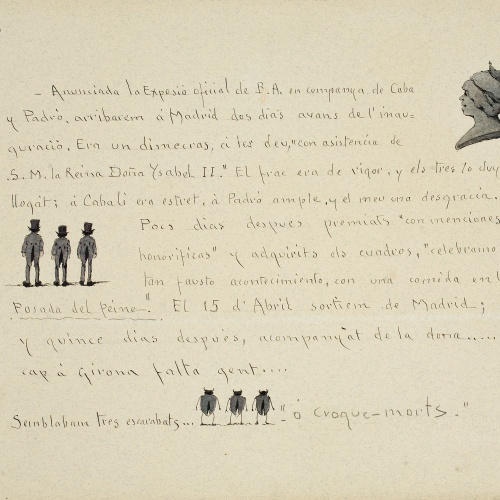 - Anunciada la Exposió oficial de B.A. en companya de Caba
y Padró, arribarem á Madrid dos dias avans de l'inau-
guració. Era un dimecras, á les deu, "con asistencia de
S. M. la Reina Doña Ysabel II." El frac era de rigor, y els tres lo
llogát; á Cabali era estret, á Padró ample, y el meu una desgracia.
Pocs dias despues premiats "con menciones
honorificas" y adquirits els cuadros, "celebramo
tan fausto acontecimiento, con una comida en l
Posada del Peine". El 15 d'Abril sortirem de Madrid;
y quince dias después, acompanyat de la dona.....
cap á Girona falta gent....
Semblabam tres escarabats... "ó croque-morts."